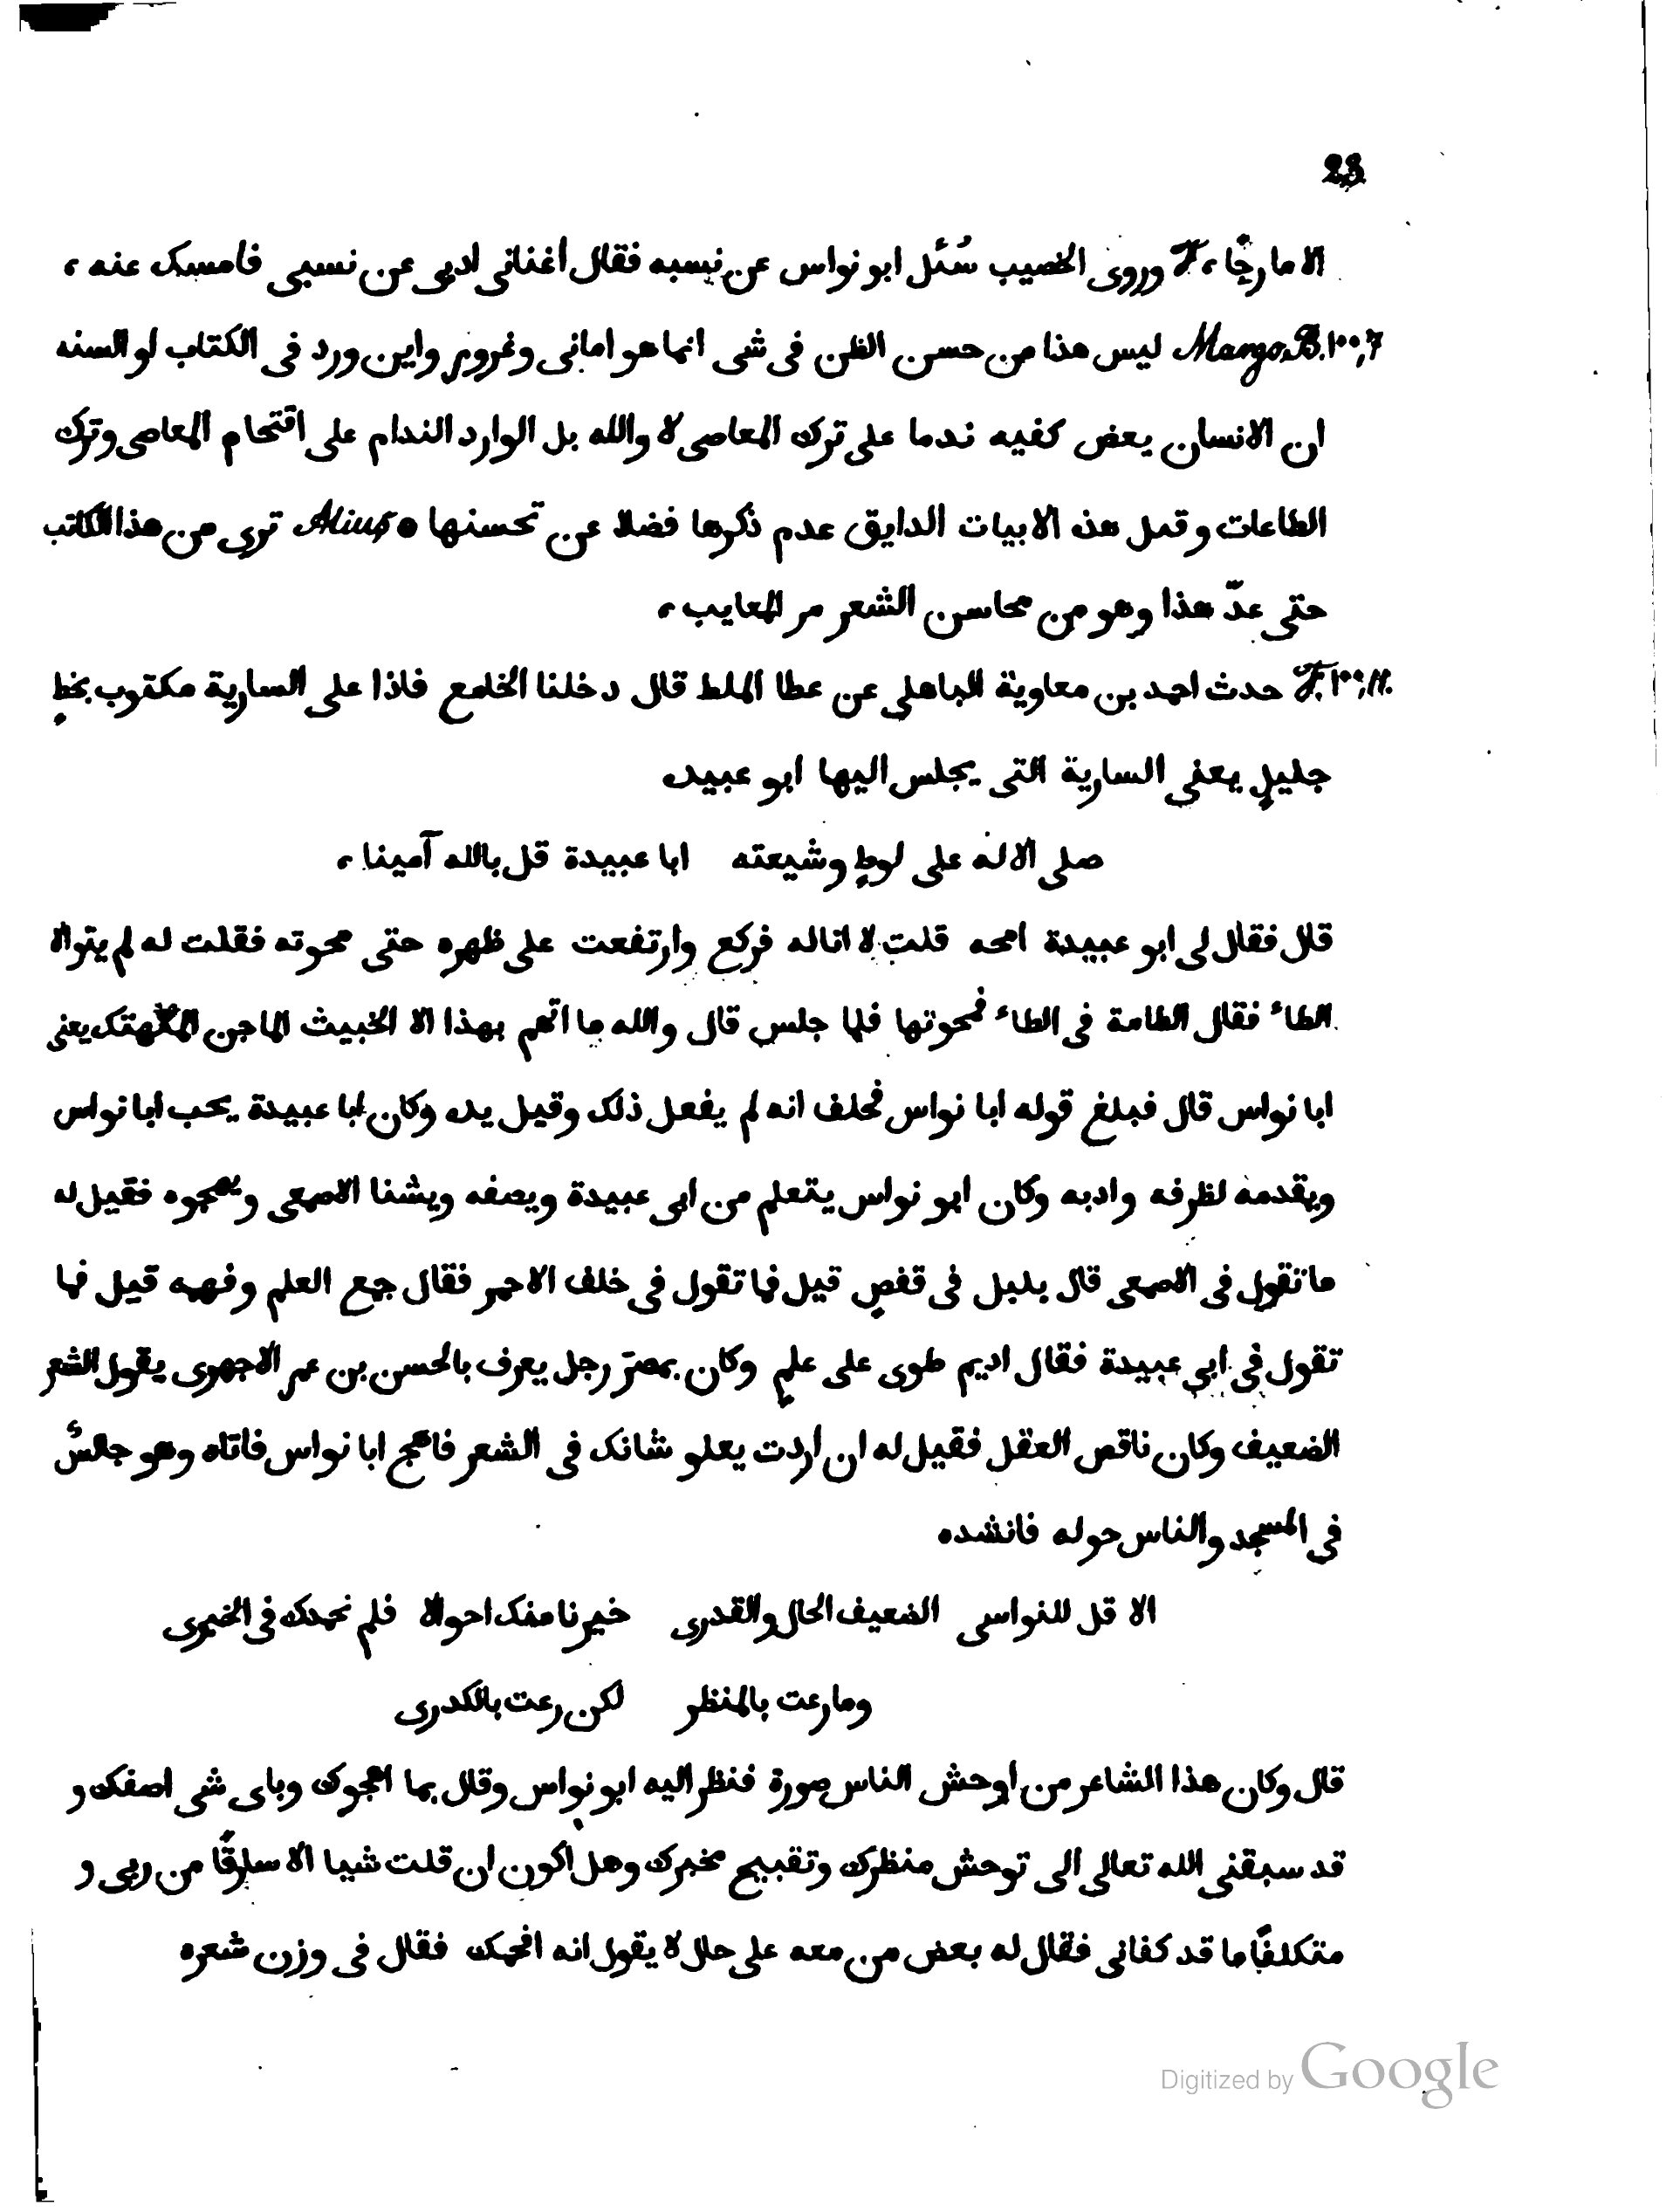 23
الا مارجًا، F وروى الخصيب سُئل ابو نواس عن نسبه فقال أغنانى ادبى عن نسبى فامسك عنه،
Margo.B.٣٠,٦ ليس هذا من حسن الظن فى شى انما هو امانى وغرور واين ورد فى الكتاب لو السنه
ان الانسان يعض كفيه ندما على ترك المعاصى لا والله بل الوارد الندام على اقتحام المعاصى وترك
الطاعات وقمل هذه الابيات الدايق عدم ذكرها فضلا عن تحسنها ٥ Alius, ترى من هذا الكاتب
حتى عدّ هذا وهو من محاسن الشعر مر المعايب،
F.٣٠,١١. حدث احمد بن معاوية الباهلى عن عطا الملط قال دخلنا الجامع فاذا على السارية مكتوب بخطٍ
جليلٍ يعنى السارية التى يجلس اليها ابو عبيده
صلى الاله على لوطٍ وشيعته ابا عبيدة قل بالله آمينا،
قال فقال لى ابو عبيدة امحه قلت لا اناله فركع وارتفعت على ظهره حتى محوته فقلت له لم يتوالا
الطاء فقال الطامة فى الطاء فمحوتها فلما جلس قال والله ما اتهم بهذا الا الخبيث الماجن المتهتك يعنى
ابا نواس قال فبلغ قوله ابا نواس فحلف انه لم يفعل ذلك وقبل يده وكان ابا عبيدة يحب ابا نواس
ويقدمه لظرفه وادبه وكان ابو نواس يتعلم من ابى عبيدة ويصفه ويشنا الاصمعى ويهجوه فقيل له
ما تقول فى الاصمعى قال بلبل فى قفصٍ قيل فما تقول فى خلف الاحمر فقال جمع العلم وفهمه قيل فما
تقول فى ابى عبيدة فقال اديم طوى على علمٍ وكان بمصرَ رجل يعرف بالحسن بن عمر الاجهرى يقول الشعر
الضعيف وكان ناقص العقل فقيل له ان اردت يعلو شانك فى الشعر فاهج ابا نواس فاتاه وهو جالسٌ
فى المسجد والناس حوله فانشده
الا قل للنواسى الضعيف الحال والقدرى خبرنا منك احوالا فلم نحمدك فى الخبرى
وما رعت بالمنظر لكن رعت بالكدرى
قال وكان هذا الشاعر من اوحش الناس صورة فنظر اليه ابو نواس وقال بما اهجوك وباى شى اصفك و
قد سبقنى الله تعالى الى توحش منظرك وتقبيح مخبرك وهل اكون ان قلت شيا الا سارقًا من ربى و
متكلفًا ما قد كفانى فقال له بعض من معه على حال لا يقول انه افحمك فقال فى وزن شعره
Digitized by Google